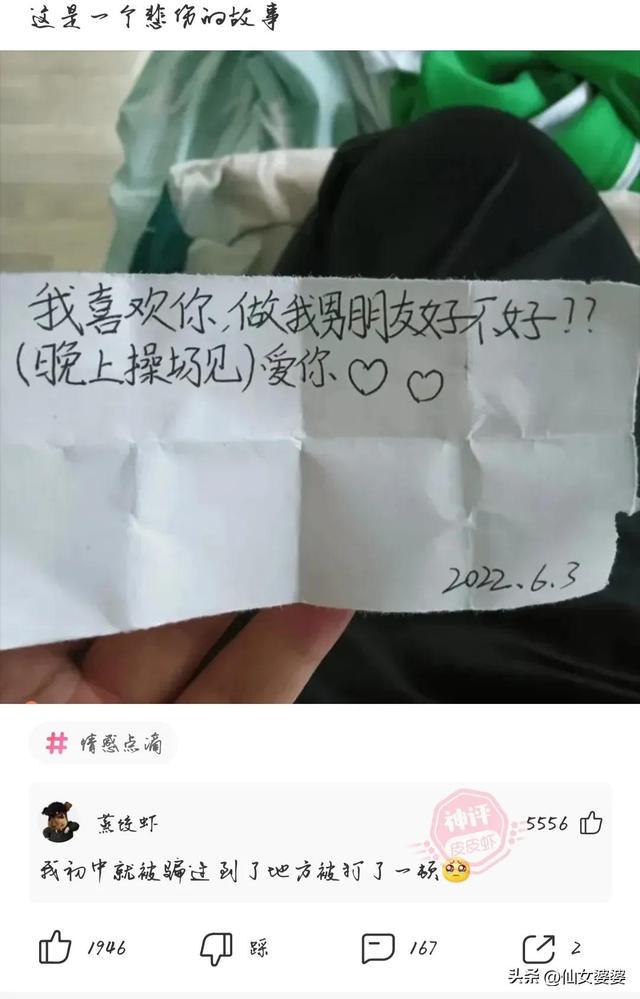 这是一个悲伤的故事
我喜欢你,做我男朋友好不好??
(晚上操场见)爱你♡♡
2022.6.3
# 情感点滴
蒸饺虾
神评
皮皮虾
5556
我初中就被骗过 到了地方被打了一顿🥺
1946
踩
167
2
头条 @仙女婆婆